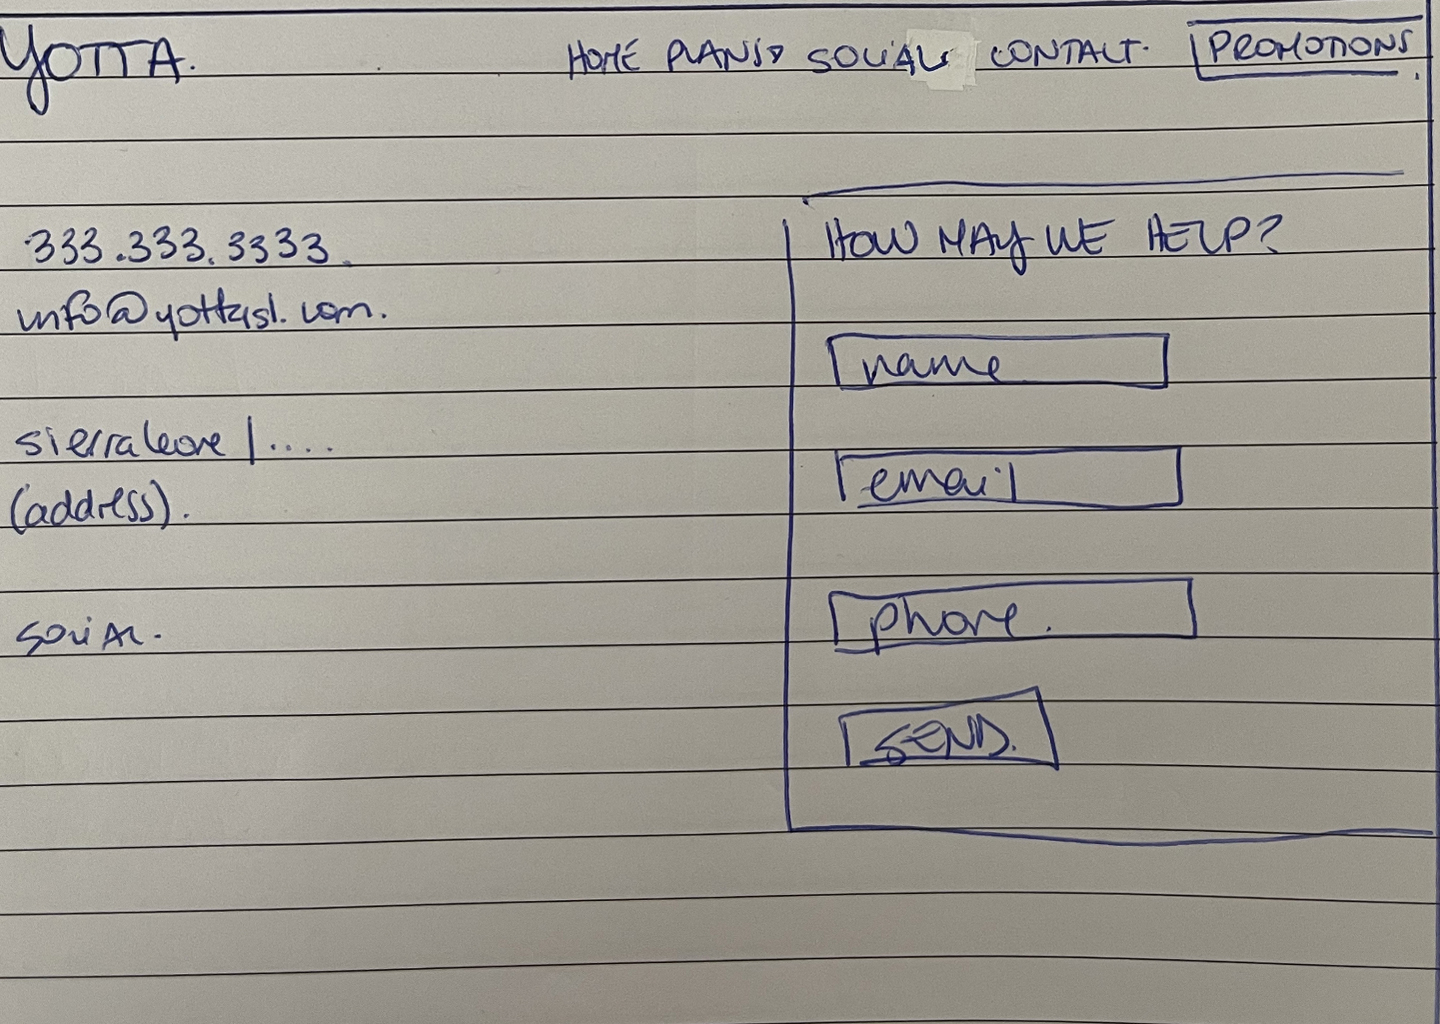 YOTTA.
HOME PLANS SOCIAL CONTACT. PROMOTIONS
333.333.3333.
info@yottasl.com.
sierraleone |....
(address).
SOCIAL.
HOW MAY WE HELP?
name
email
phone.
SEND.